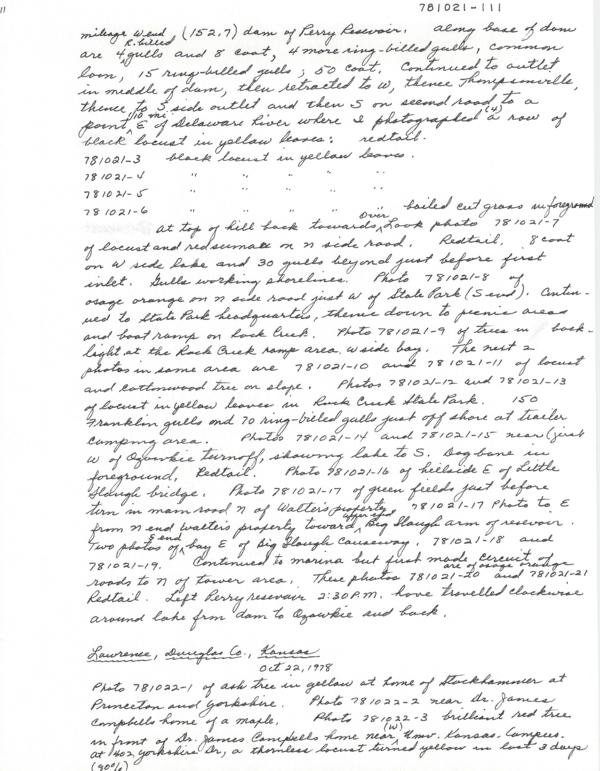 11
781021-111
mileage W end (152.7) dam of Perry Resevoir. Along base of dam
R. billed
are 4 gulls and 8 coot, 4 more ring-billed gulls, common
loon, 15 ring-billed gulls; 50 coot. Continued to outlet
in middle of dam, then retracted to W, thence Thompsonville,
thence to S side outlet and then S on second road to a
point 1/10 mi. E of Delaware River where I photographed (4) a row of
black locust in yellow leaves: redtail.
781021-3 black locust in yellow leaves.
781021-4 " " " " "
781021-5 " " " " "
781021-6 " " " " " bailed cut grass in foreground
At top of hill back towards over Look photo 781021-7
of locust and red sumac on N side road. Redtail, 8 coot
on W side lake and 30 gulls beyond just before first
inlet. Gulls working shorelines. Photo 781021-8 of
osage orange on N side road just W of State Park (S end). Contin-
ued to State Park headquarters, thence down to picnic areas
and boat ramp on Rock Creek. Photo 781021-9 of trees in back-
light at the Rock Creek ramp area W side bay. The next 2
photos in same area are 781021-10 and 781021-11 of locust
and cottonwood tree on slope. Photos 781021-12 and 781021-13
of locust in yellow leaves in Rock Creek State Park. 150
Franklin gulls and 70 ring-billed gulls just off shore at trailer
camping area. Photos 781021-14 and 781021-15 near (just
W of Ozawkie turnoff, showing lake to S. Dogbane in
foreground, Redtail. Photo 781021-16 of hillside E of Little
Slough bridge. Photo 781021-17 of green fields just before
turn in main road N of Walter's property 781021-17 Photo to E
from N end Walter's property toward upper end Big Slough arm of resevoir.
Two photos of S end bay E of Big Slough Causeway, 781021-18 and
781021-19. Continued to marina but first made circuit of
roads to N of tower area. These photos 781021-20 and 781021-21 are of osage orange
Redtail. Left Perry resevoir 2:30 P.M. have travelled clockwise
around lake from dam to Ozawkie and back.
Lawrence, Douglas Co., Kansas
Oct 22, 1978
Photo 781022-1 of ash tree in yellow at home of Stockhammer at
Princeton and Yorkshire. Photo 781022-2 near Dr. James
Campbells home of a maple. Photo 781022-3 brilliant red tree
in front of Dr. James Campbells home near (W) Univ. Kansas. Campus.
at 402 Yorkshire Dr, a thornless locust turned yellow in last 3 days
(90%)